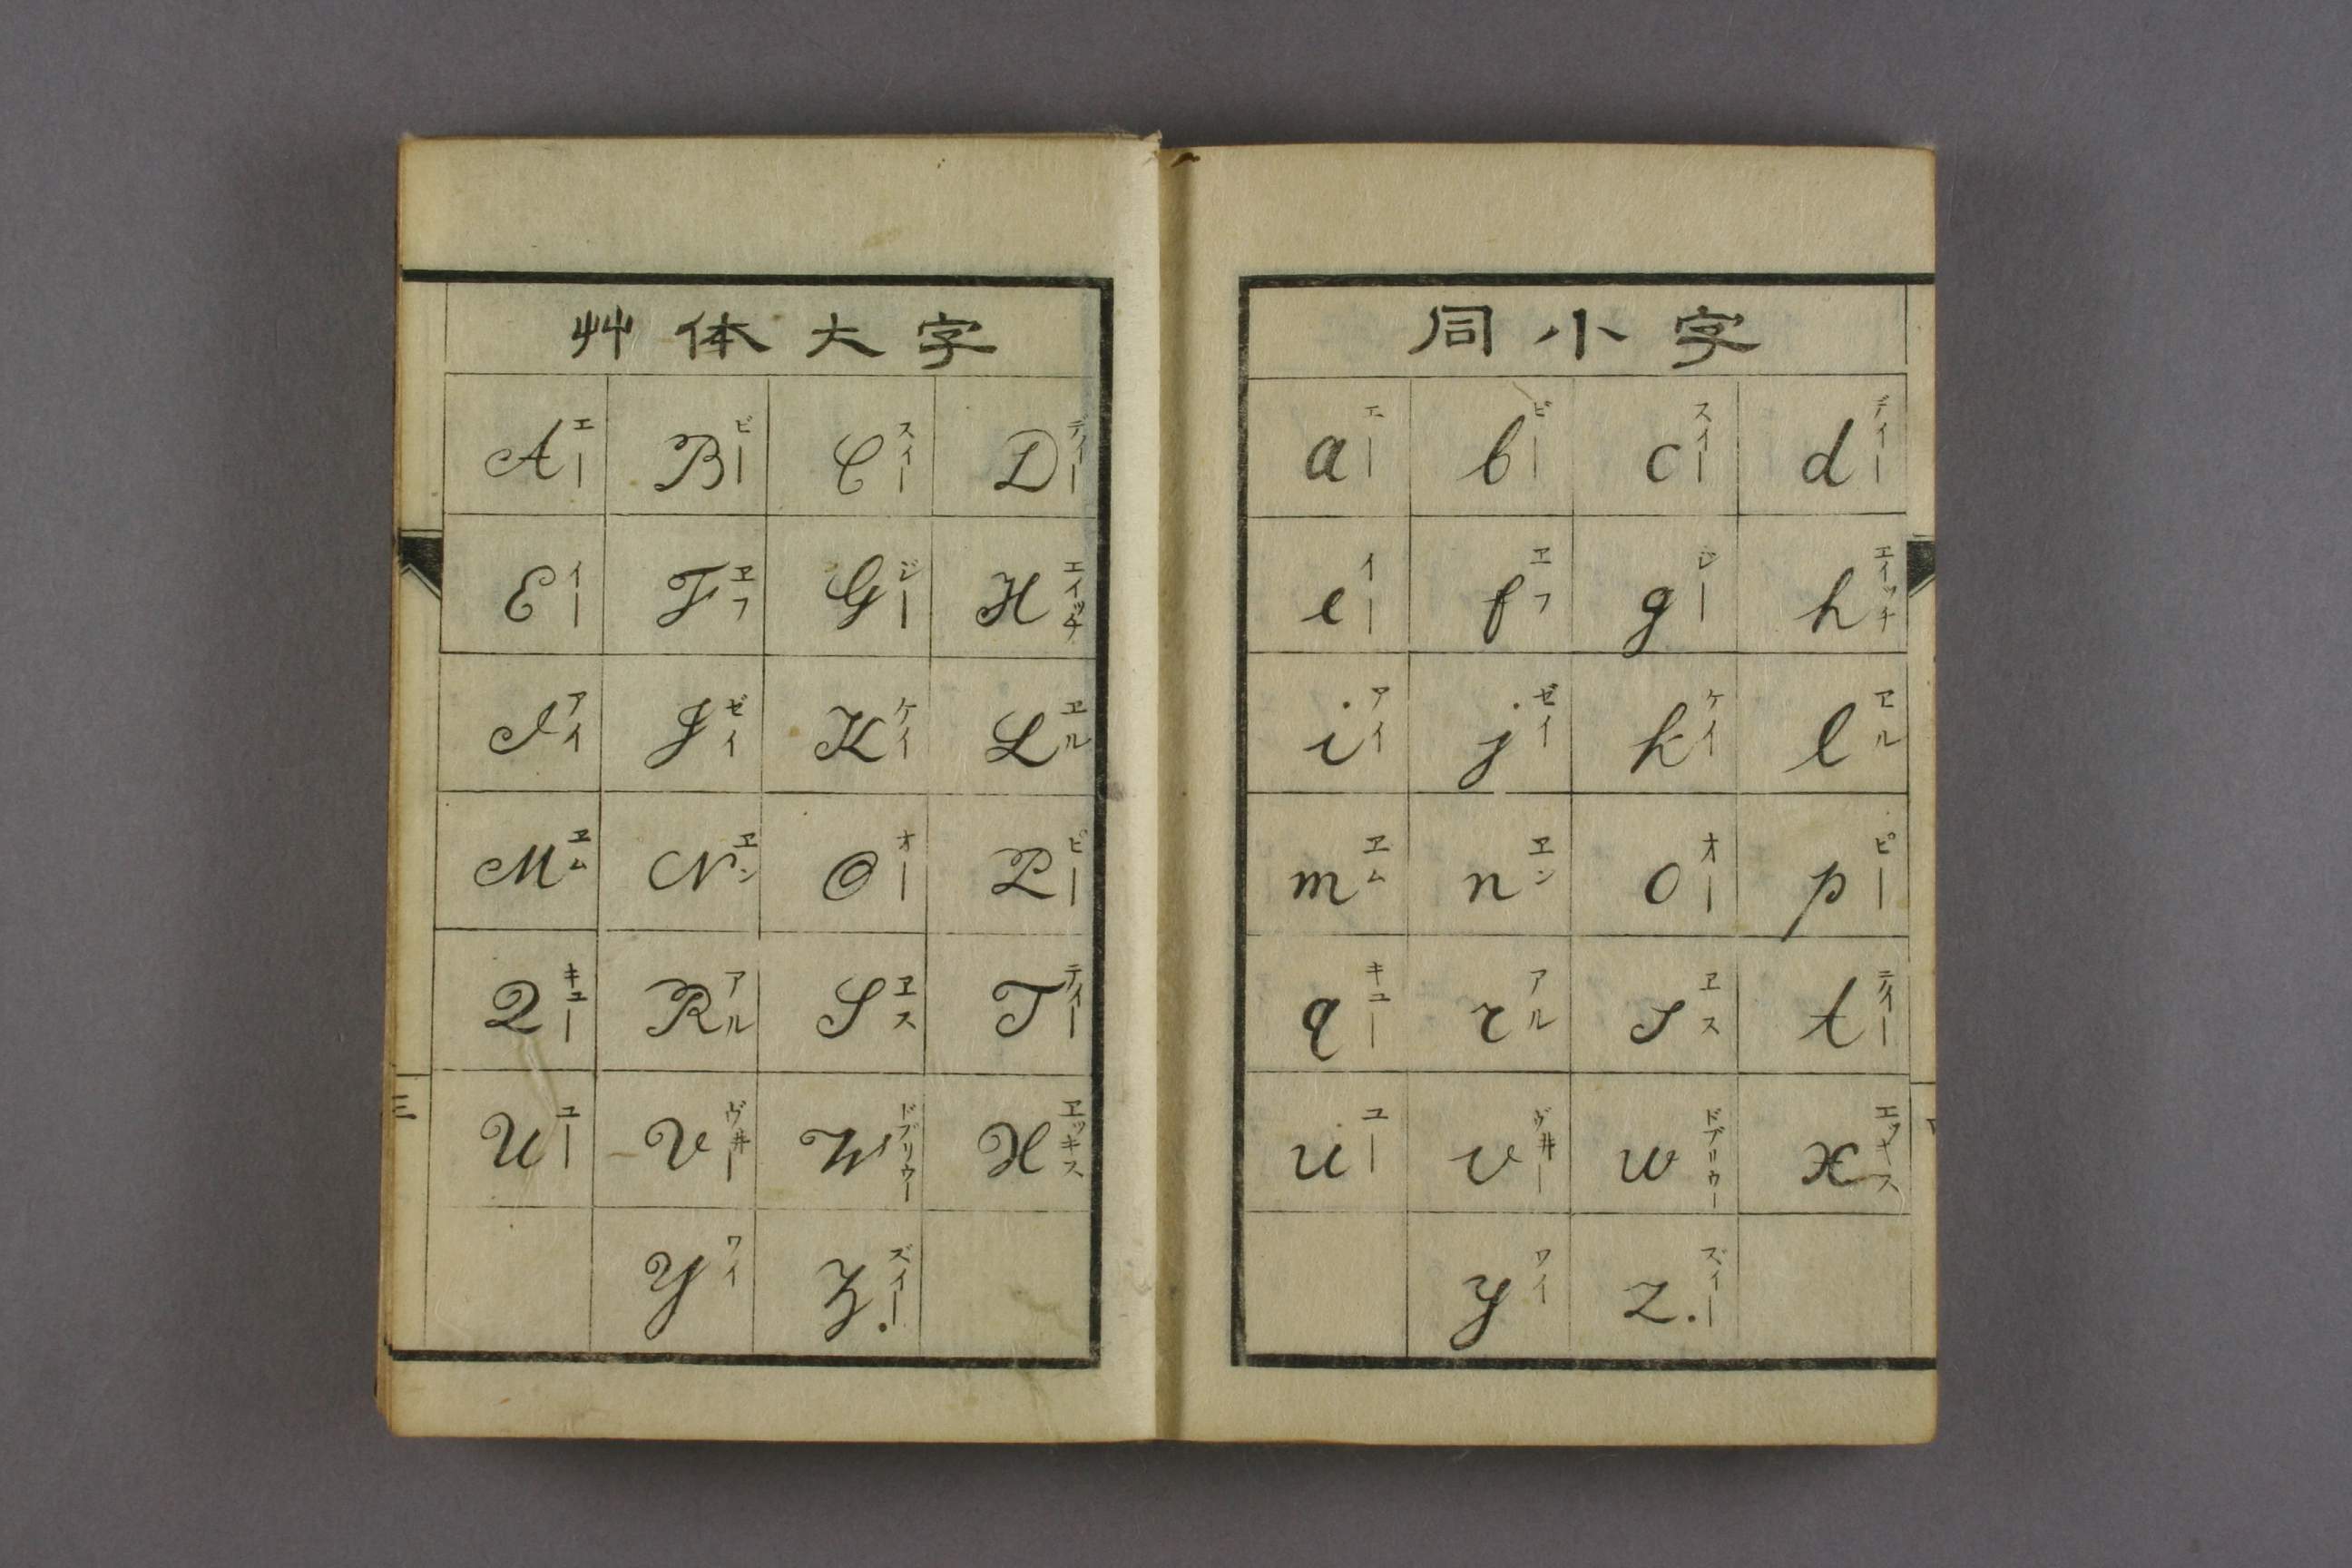 艸体大字
A エー B ビー C スイー D デイー
E イー F ヱフ G ジー H エイッチ
I アイ J ゼイ K ケイ L ヱル
M ヱム N ヱン O オー P ピー
Q キユー R アル S ヱス T テイー
U ユー V ヴ井ー W ドブリウー X ヱッキス
Y ワイ Z. ズイー
三
同小字
a エー b ビー c スイー d デイー
e イー f ヱフ g ジー h エイッチ
i アイ j ゼイ k ケイ l ヱル
m ヱム n ヱン o オー p ピー
q キユー r アル s ヱス t テイー
u ユー v ヴ井ー w ドブリウー x エッキス
y ワイ z. ズイー